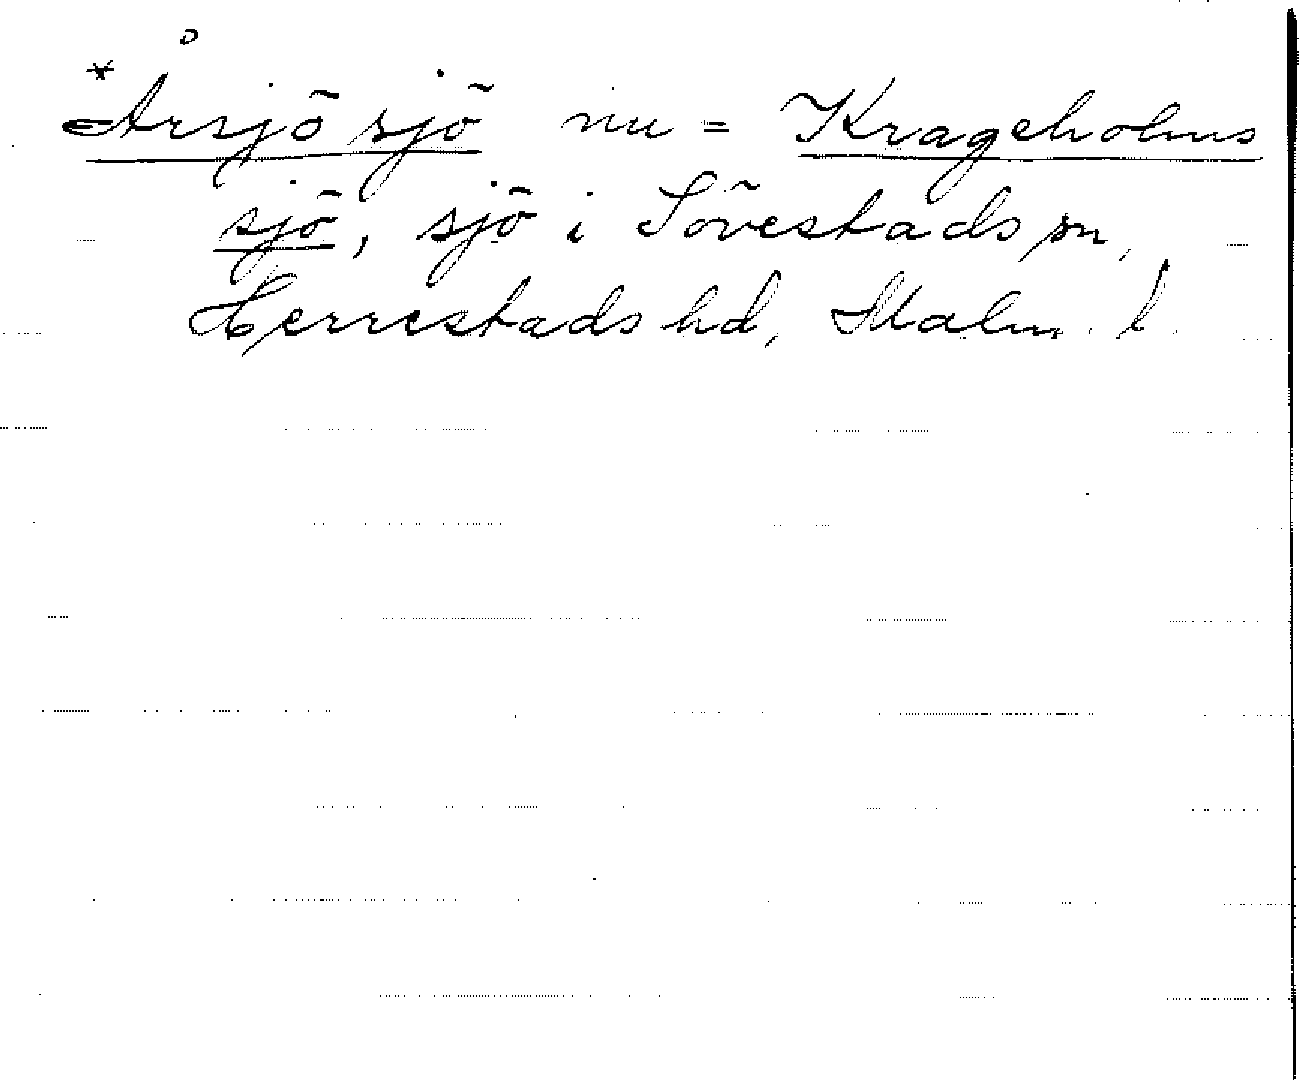 *Årsjö sjö nu = Krageholms
sjö, sjö i Sövestads sn,
Herrestads hd, Malm. l.